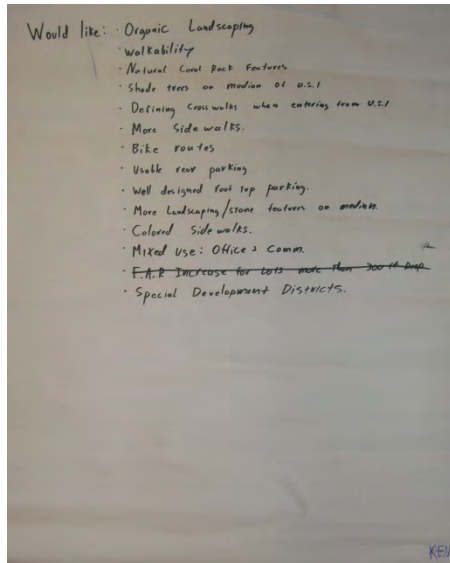 Would like: · Organic Landscaping
· Walkability
· Natural Coral Rock Features
· Shade trees on median of U.S.1
· Defining Crosswalks when entering from U.S.1
· More Sidewalks.
· Bike routes
· Usable rear parking
· Well designed roof top parking.
· More Landscaping/stone features on median
· Colored Sidewalks.
· Mixed Use: Office & Comm.
· F.A.R Increase for Lots more than 300 ft Deep
· Special Development Districts.
KEV